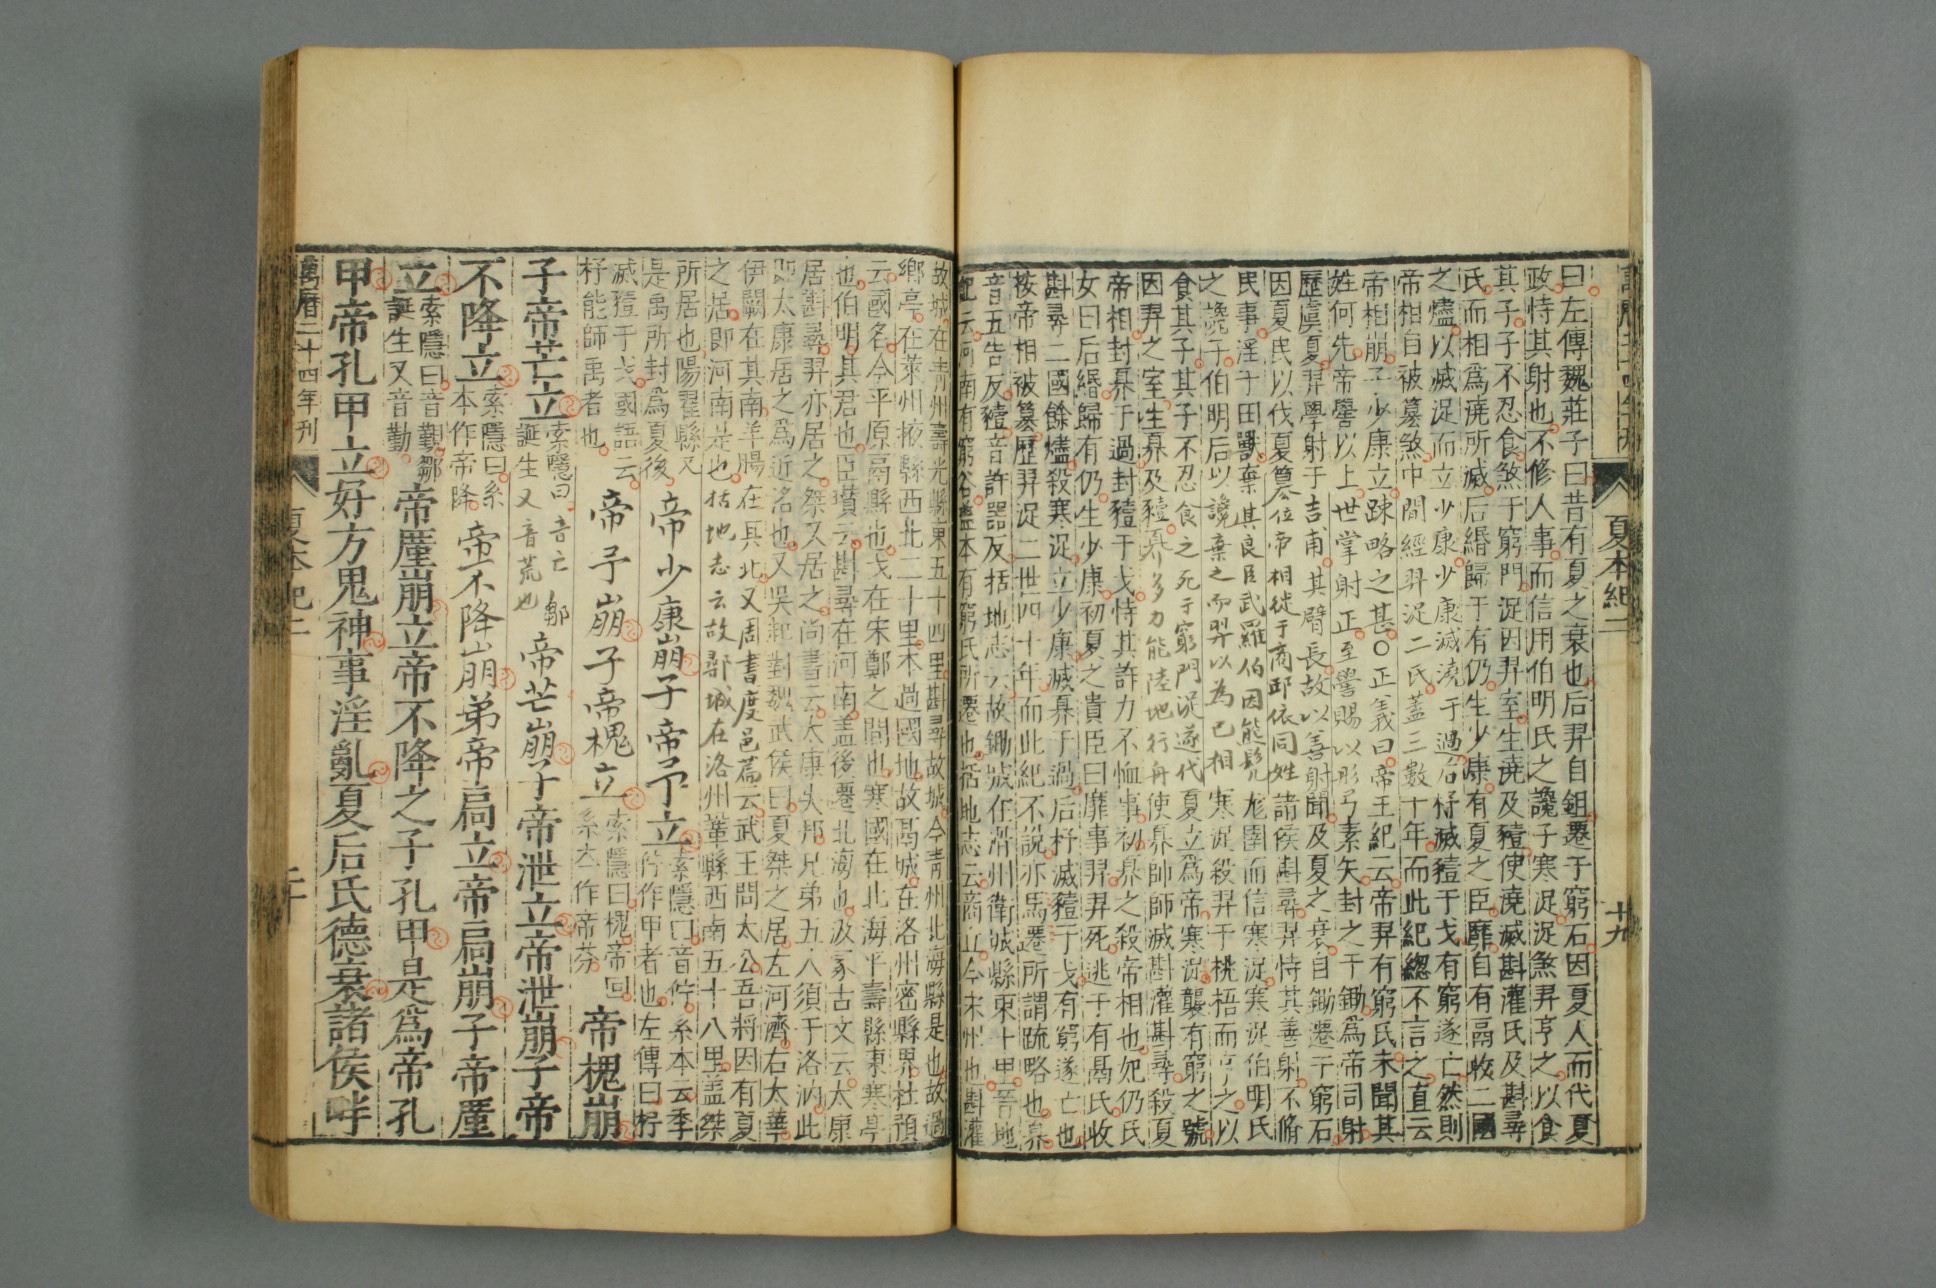 夏本紀二
十九
曰左傳魏莊子曰昔有夏之衰也后羿自鉏遷于窮石因夏人而代夏
政恃其射也不修人事而信用伯明氏之讒子寒浞浞煞羿亨之以食
其子子不忍食煞于窮門浞因羿室生澆及豷使澆滅斟灌氏及斟尋
氏而相爲澆所滅后緡歸于有仍生少康有夏之臣靡自有鬲收二國
之燼以滅浞而立少康少康滅澆于過后杼滅豷于戈有窮遂亡然則
帝相自被篡煞中間經羿浞二氏蓋三數十年而此紀總不言之直云
帝相崩子少康立疎略之甚○正義曰帝王紀云帝羿有窮氏未聞其
姓何先帝嚳以上世掌射正至嚳賜以彤弓素矢封之于鋤爲帝司射
歷虞夏羿學射于吉甫其臂長故以善射聞及夏之衰自鋤遷于窮石
因夏民以伐夏篡位帝相徙于商邱依同姓諸侯斟尋羿恃其善射不脩
民事淫于田獸棄其良臣武羅伯因熊髡尨圉而信寒浞寒浞伯明氏
之讒子伯明后以讒棄之而羿以為己相寒浞殺羿于桃梧而亨之以
食其子其子不忍食之死于窮門浞遂代夏立爲帝寒浞襲有窮之號
因羿之室生奡及豷奡多力能陸地行舟使奡帥師滅斟灌斟尋殺夏
帝相封奡于過封豷于戈恃其詐力不恤事初奡之殺帝相也妃仍氏
女曰后緡歸有仍生少康初夏之貴臣曰靡事羿羿死逃于有鬲氏收
斟尋二國餘燼殺寒浞立少康滅奡于過后杼滅豷于戈有窮遂亡也
按帝相被篡歷羿浞二世四十年而此紀不說亦馬遷所謂疏略也奡
音五告反豷音許器反括地志云故鋤城在滑州衛城縣東十里晉地
記云河南有窮谷蓋本有窮氏所遷也括地志云商丘今宋州也斟灌
故城在青州壽光縣東五十四里斟尋故城今青州北海縣是也故過
鄉亭在萊州掖縣西北二十里本過國地故鬲城在洛州密縣界杜預
云國名今平原鬲縣也戈在宋鄭之間也寒國在北海平壽縣東寒亭
也伯明其君也臣瓚云斟尋在河南蓋後遷北海也汲冢古文云太康
居斟尋羿亦居之桀又居之尚書云太康失邦兄弟五人須于洛汭此
即太康居之爲近洛也又吳起對魏武侯曰夏桀之居左河濟右太華
伊闕在其南羊腸在其北又周書度邑篇云武王問太公吾將因有夏
之居即河南是也括地志云故鄩城在洛州鞏縣西南五十八里蓋桀
所居也陽翟縣又
是禹所封爲夏後
帝少康崩子帝予立
索隱曰音佇系本云季
佇作甲者也左傳曰杼
滅豷于戈國語云
杼能師禹者也
帝予崩子帝槐立
索隱曰槐帝回
系本作帝芬
帝槐崩
子帝芒立
索隱曰音亡鄒
誕生又音荒也
帝芒崩子帝泄立帝泄崩子帝
不降立
索隱曰系
本作帝降
帝不降崩弟帝扃立帝扃崩子帝廑
立
索隱曰音覲鄒
誕生又音勤
帝廑崩立帝不降之子孔甲是爲帝孔
甲帝孔甲立好方鬼神事淫亂夏后氏德衰諸侯畔
萬曆二十四年刊
夏本紀二
二十